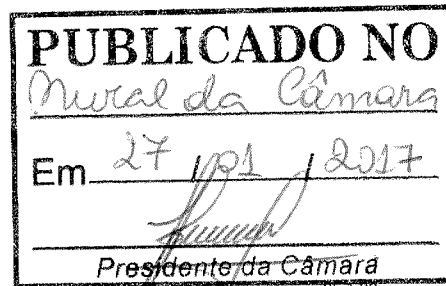 PUBLICADO NO
Mural da Câmara
Em 27 / 01 / 2017
Presidente da Câmara